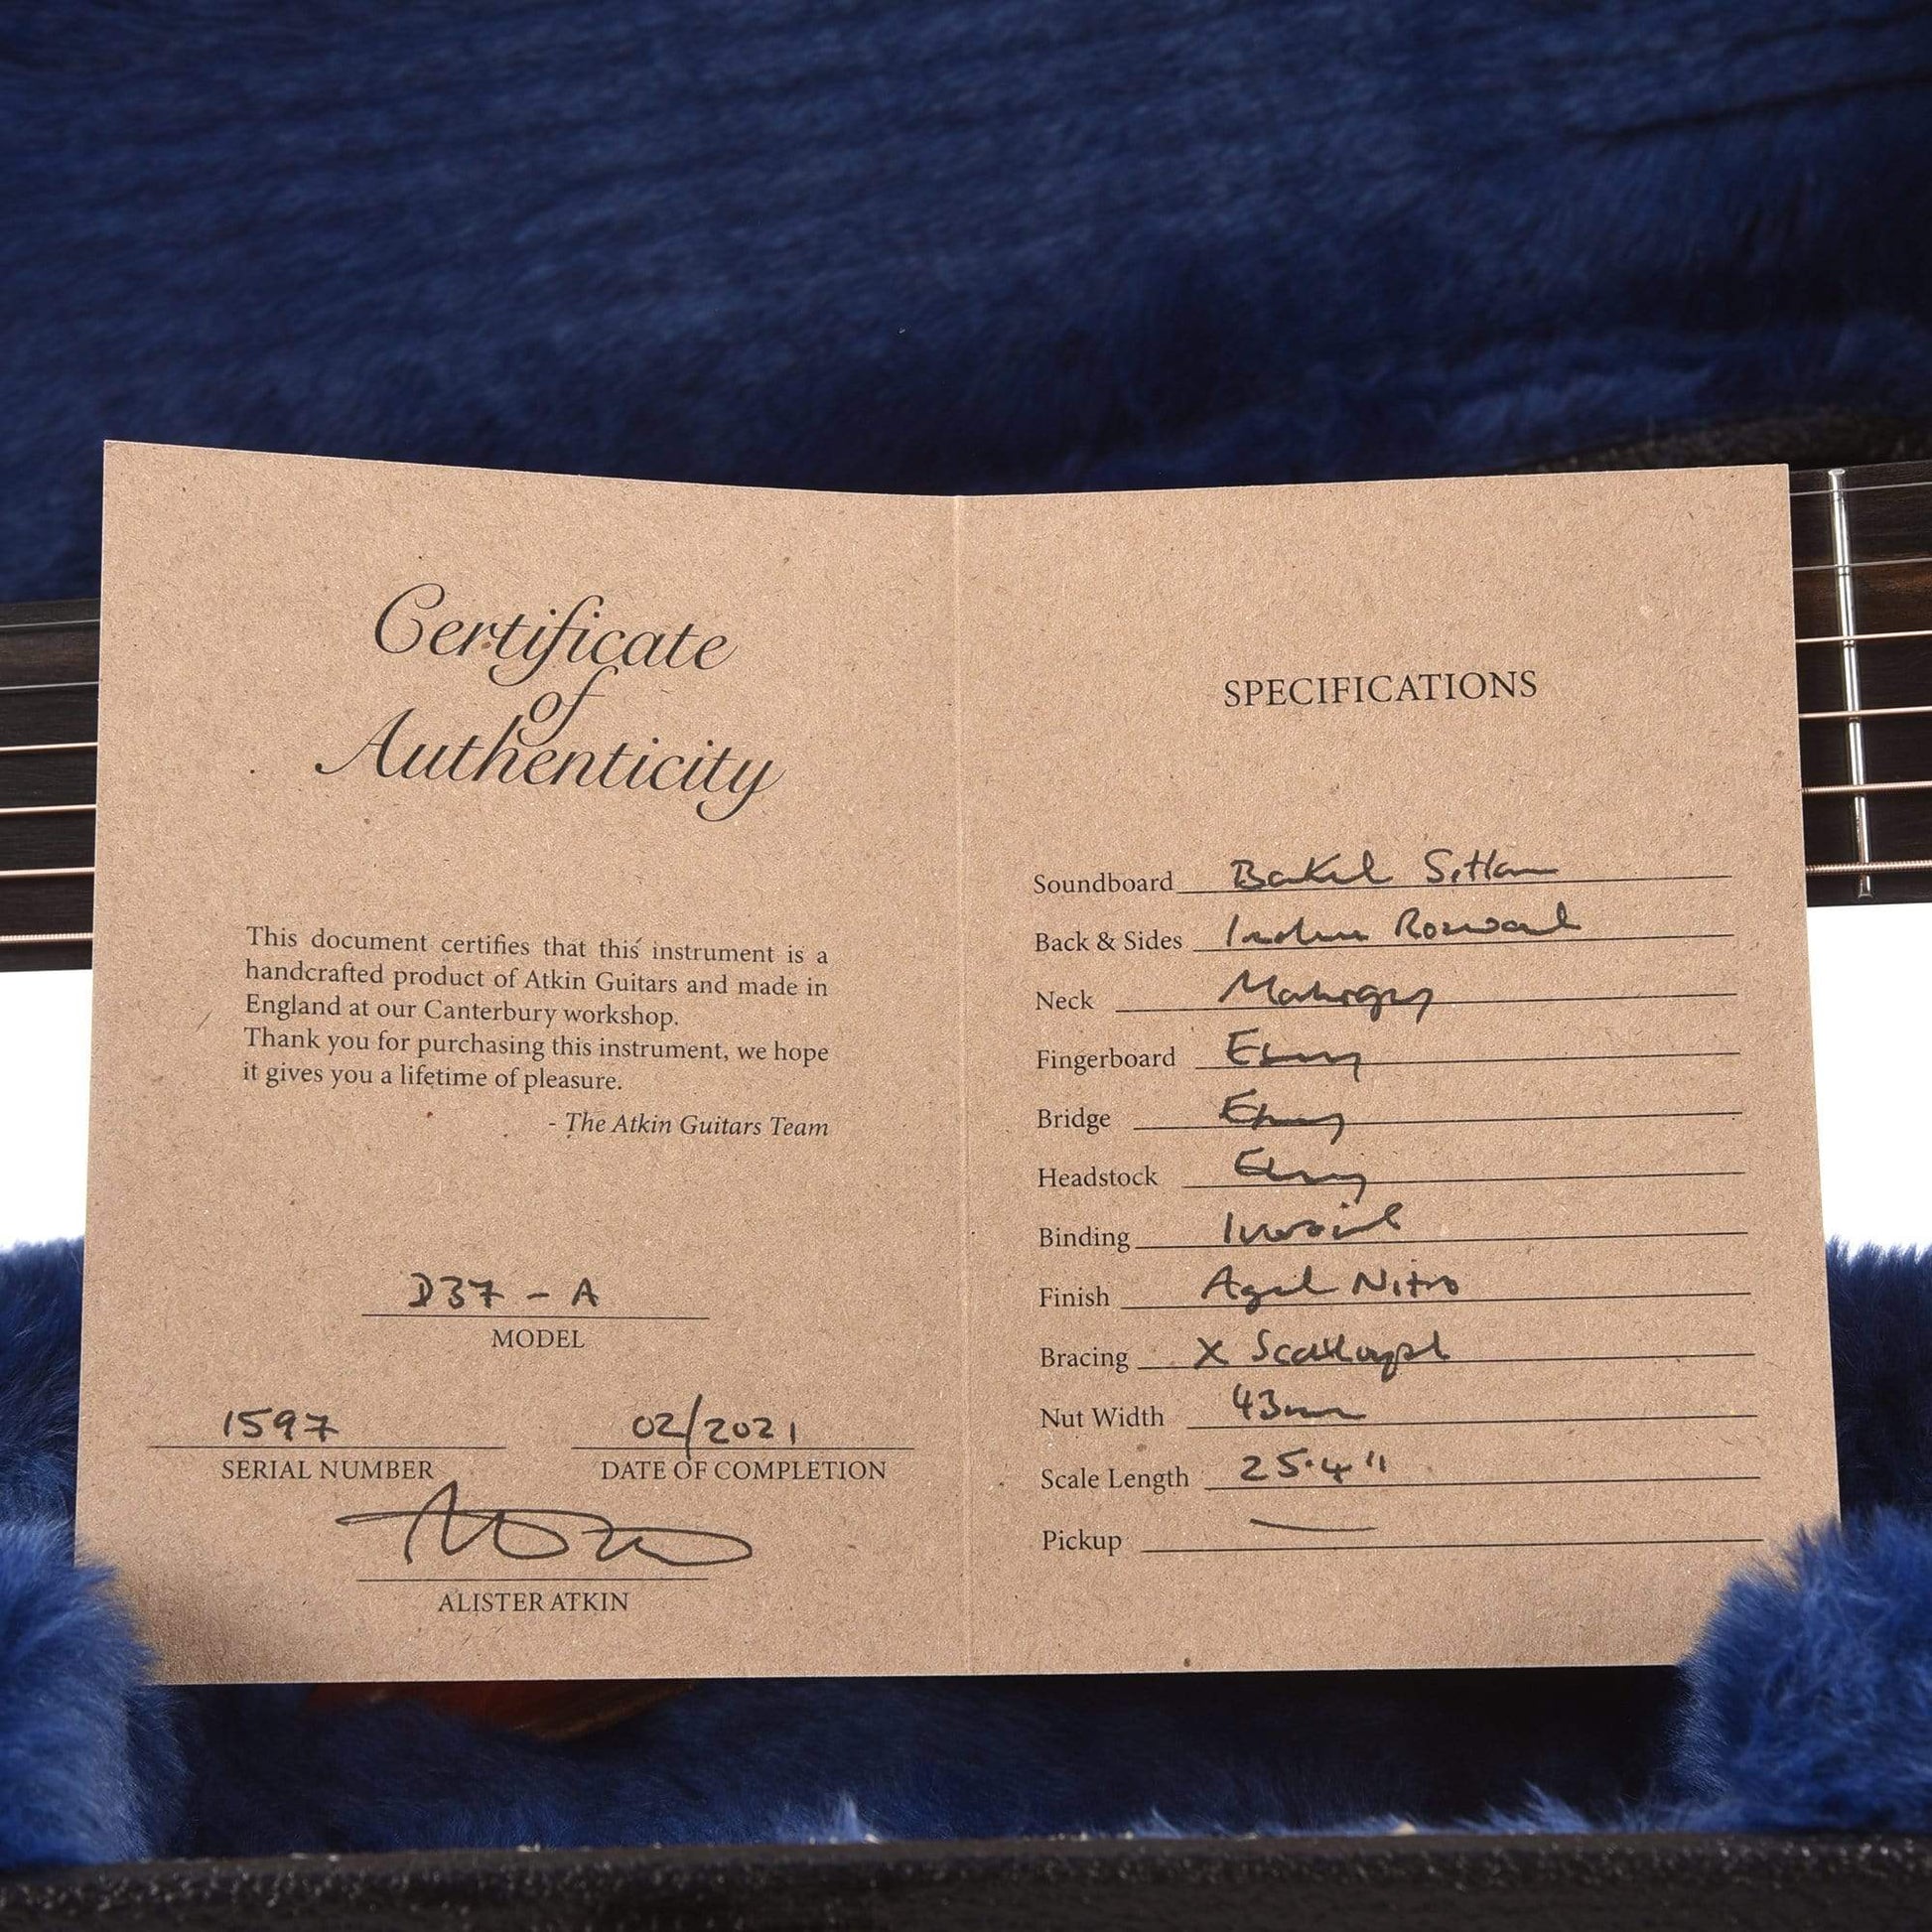 Certificate
of
Authenticity
This document certifies that this instrument is a
handcrafted product of Atkin Guitars and made in
England at our Canterbury workshop.
Thank you for purchasing this instrument, we hope
it gives you a lifetime of pleasure.
- The Atkin Guitars Team
D37 - A
MODEL
1597
SERIAL NUMBER
02/2021
DATE OF COMPLETION
ALISTER ATKIN
SPECIFICATIONS
Soundboard Baked Sitka
Back & Sides Indian Rosewood
Neck Mahogany
Fingerboard Ebony
Bridge Ebony
Headstock Ebony
Binding Ivoroid
Finish Aged Nitro
Bracing X Scalloped
Nut Width 43mm
Scale Length 25.4"
Pickup —